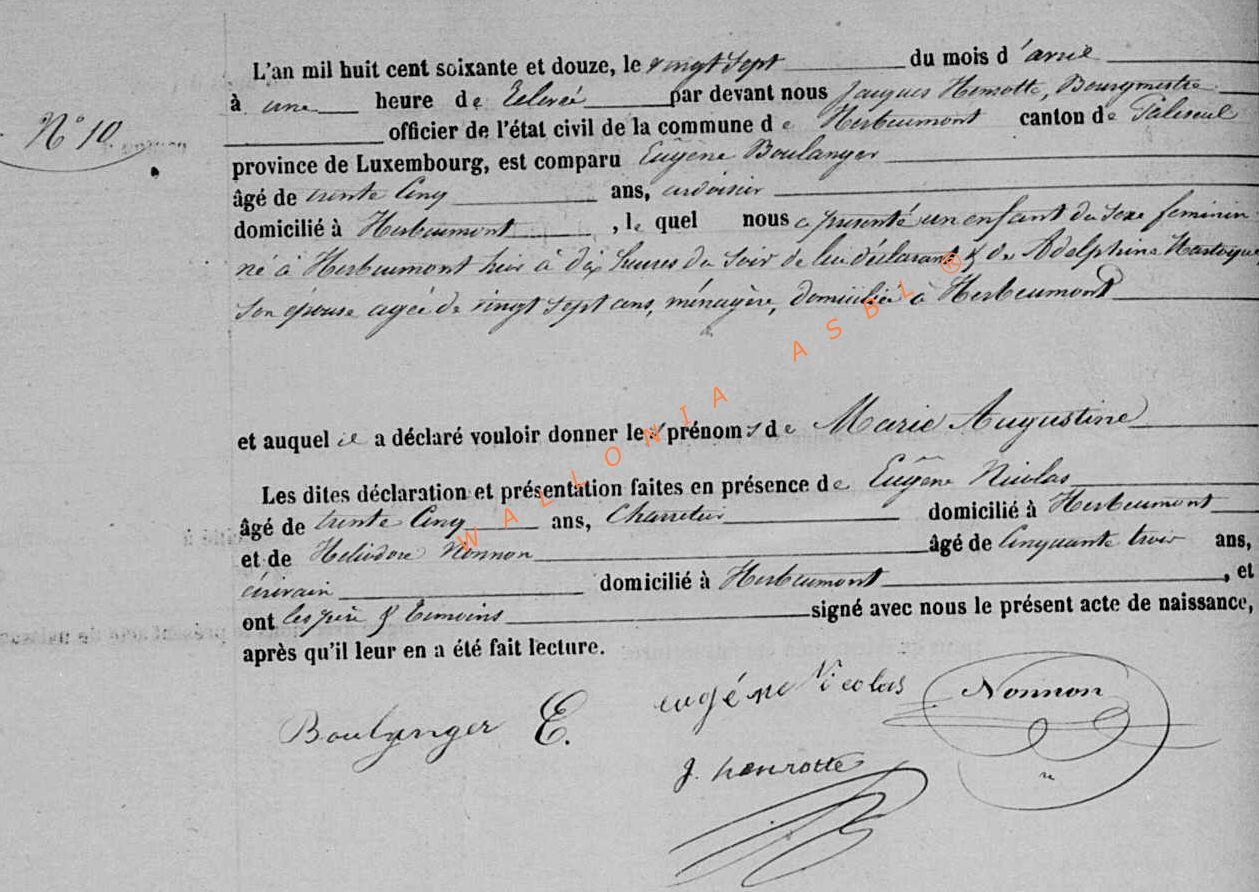 L'an mil huit cent soixante et douze, le vingt Sept du mois d'avril
à une heure de Relevée par devant nous Jacques Henrotte, Bourgmestre
N° 10
officier de l'état civil de la commune de Herbeumont canton de Paliseul
province de Luxembourg, est comparu Eugène Boulanger
âgé de trente Cinq ans, ardoisier
domicilié à Herbeumont, le quel nous a présenté un enfant du sexe féminin
né à Herbeumont hier à dix heures du soir de lui déclarant & de Adelphine
son épouse agée de vingt sept ans, ménagère, domiciliée à Herbeumont
et auquel il a déclaré vouloir donner les prénoms de Marie Augustine
Les dites déclaration et présentation faites en présence de Eugène Nicolas
âgé de trente Cinq ans, Charretier domicilié à Herbeumont
et de Heliodore Nonnon âgé de Cinquante trois ans,
écrivain domicilié à Herbeumont, et
ont les père & témoins signé avec nous le présent acte de naissance,
après qu'il leur en a été fait lecture.
Boulanger E.
eugéne Nicolas
Nonnon
J. henrotte
WALLONIA ASBL ®